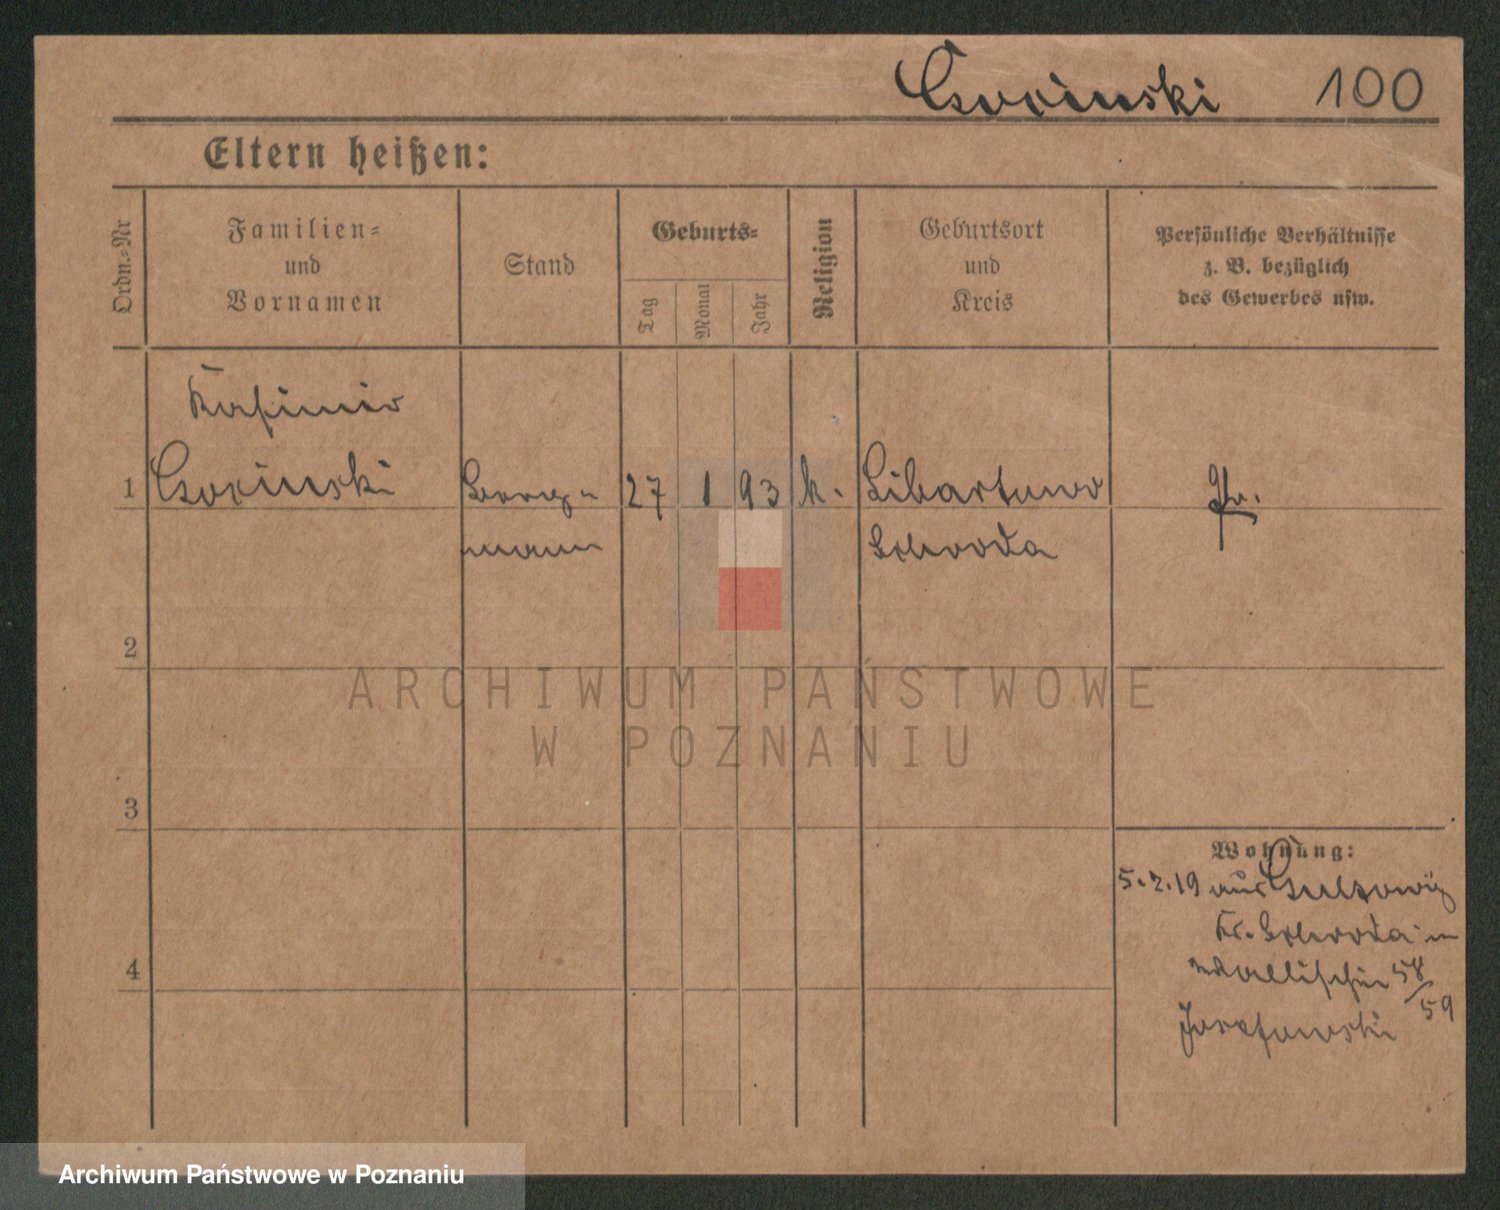 Czosinski 100
Eltern heißen:
Ordn.-Nr
Familien-
und
Vornamen
Stand
Geburts-
Tag
Monat
Jahr
Religion
Geburtsort
und
Kreis
Persönliche Verhältnisse
z. B. bezüglich
des Gewerbes usw.
Kasimir
1 27 1 93 k. Libartowo
Schroda
2
3
Wohnung:
5.2.19 aus
Kr. Schroda in
4 Wallischei 58/59
Josefowski
ARCHIWUM PAŃSTWOWE
W POZNANIU
Archiwum Państwowe w Poznaniu